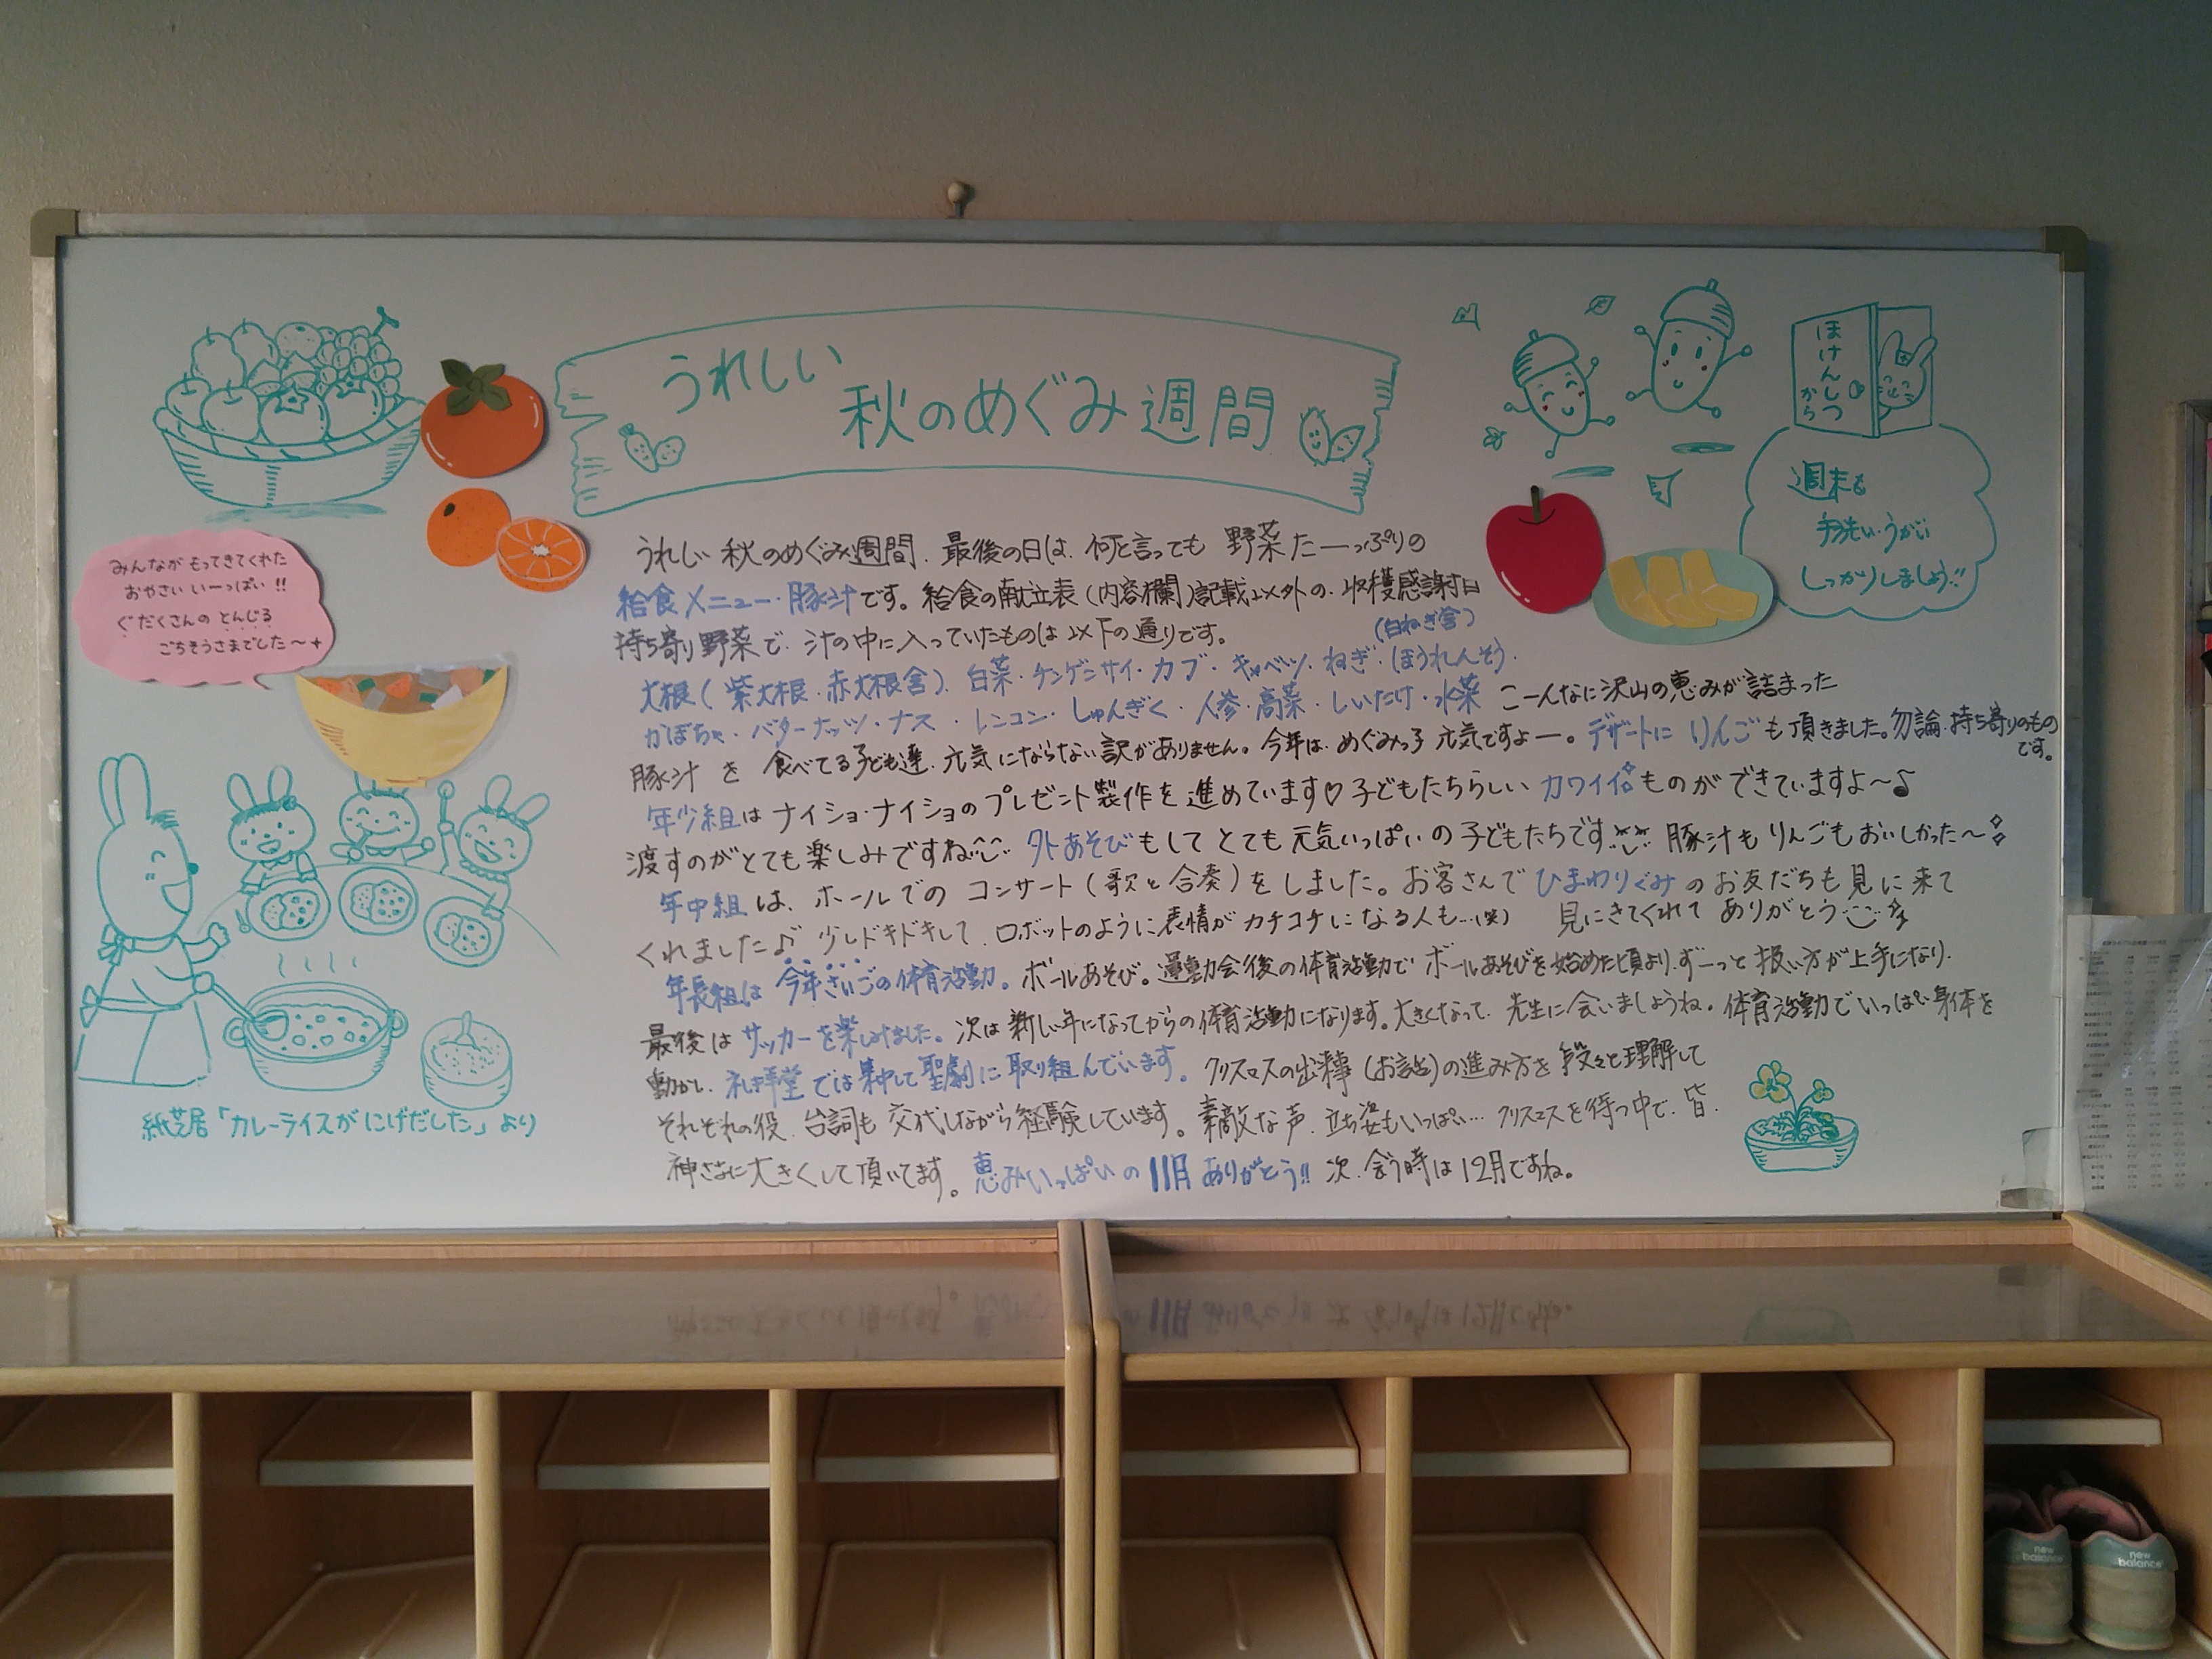 うれしい
秋のめぐみ週間
ほけんしつ
から
週末も
手洗い・うがい
しっかりしましょう!!
みんながもってきてくれた
おやさい いーっぱい!!
ぐだくさんの とんじる
ごちそうさまでした〜
うれしい 秋のめぐみ週間、最後の日は、何と言っても 野菜たーっぷりの
給食メニュー・豚汁です。給食の献立表(内容欄)記載以外の、収穫感謝日
持ち寄り野菜で、汁の中に入っていたものは以下の通りです。
(白ねぎ含)
大根(紫大根・赤大根含)、白菜・チンゲンサイ・カブ・キャベツ・ねぎ・ほうれんそう・
かぼちゃ・バターナッツ・ナス・レンコン・しゅんぎく・人参・高菜・しいたけ・水菜 こーんなに沢山の恵みが詰まった
豚汁を 食べてる子ども達、元気にならない訳がありません。今年は、めぐみっ子 元気ですよー。デザートに りんごも頂きました。勿論、持ち寄りのもの
です。
年少組はナイショ・ナイショのプレゼント製作を進めています♡子どもたちらしい カワイイものができていますよ〜♪
渡すのがとても楽しみですね 外あそびもして とても元気いっぱいの子どもたちです 豚汁もりんごもおいしかった〜
年中組は、ホールでの コンサート(歌と合奏)をしました。お客さんでひまわりぐみのお友だちも見に来て
くれました♪ 少しドキドキして、ロボットのように表情がカチコチになる人も…(笑) 見にきてくれて ありがとう
年長組は 今年さいごの体育活動。ボールあそび。運動会後の体育活動で ボールあそびを始めた頃より、ずーっと扱い方が上手になり、
最後はサッカーを楽しみました。次は新しい年になってからの体育活動になります。大きくなって、先生に会いましょうね。体育活動でいっぱい身体を
動かし、礼拝堂では集中して聖劇に取り組んでいます。クリスマスの出来事(お話)の進み方を段々と理解して
それぞれの役、台詞も交代しながら経験しています。素敵な声、立ち姿もいっぱい… クリスマスを待つ中で、皆、
神さまに大きくして頂いてます。恵みいっぱいの11月ありがとう!! 次、会う時は12月ですね。
紙芝居「カレーライスがにげだした」より
new balance
new balance